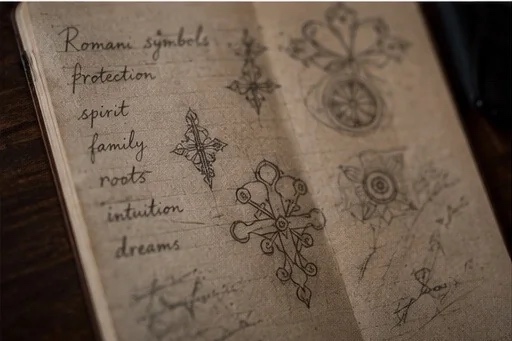 Romani symbols
protection
spirit
family
roots
intuition
dreams